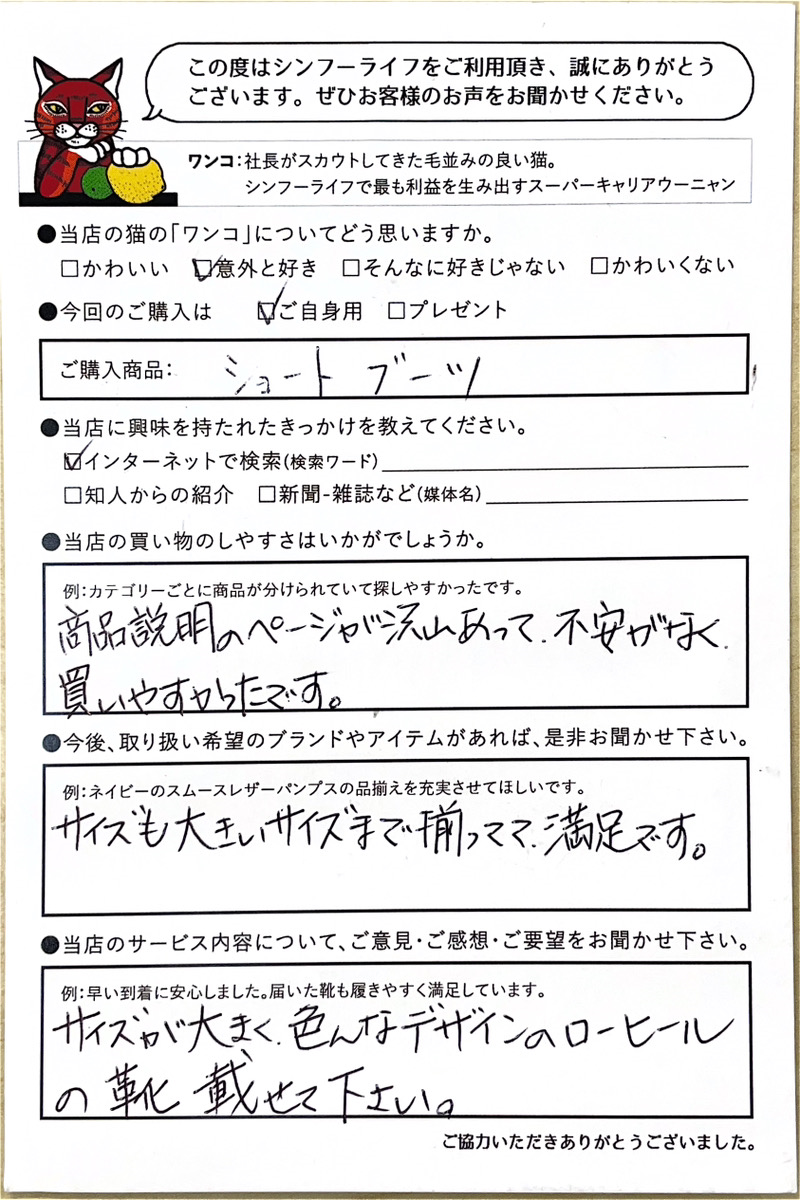 この度はシンフーライフをご利用頂き、誠にありがとう
ございます。ぜひお客様のお声をお聞かせください。
ワンコ：社長がスカウトしてきた毛並みの良い猫。
シンフーライフで最も利益を生み出すスーパーキャリアウーニャン
●当店の猫の「ワンコ」についてどう思いますか。
□かわいい ☑意外と好き □そんなに好きじゃない □かわいくない
●今回のご購入は ☑ご自身用 □プレゼント
ご購入商品： ショートブーツ
●当店に興味を持たれたきっかけを教えてください。
☑インターネットで検索(検索ワード)
□知人からの紹介 □新聞-雑誌など(媒体名)
●当店の買い物のしやすさはいかがでしょうか。
例：カテゴリーごとに商品が分けられていて探しやすかったです。
商品説明のページが沢山あって、不安がなく、
買いやすかったです。
●今後、取り扱い希望のブランドやアイテムがあれば、是非お聞かせ下さい。
例：ネイビーのスムースレザーパンプスの品揃えを充実させてほしいです。
サイズも大きいサイズまで揃ってて、満足です。
●当店のサービス内容について、ご意見・ご感想・ご要望をお聞かせ下さい。
例：早い到着に安心しました。届いた靴も履きやすく満足しています。
サイズが大きく、色んなデザインのローヒール
の靴載せて下さい。
ご協力いただきありがとうございました。